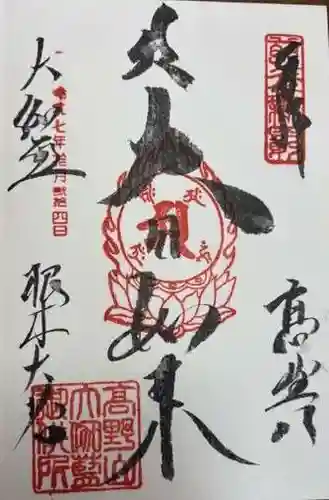 奉拝
高野山
大日如来
令和七年拾月弐拾四日
大伽藍
根本大塔
高野山
大伽藍
御供所